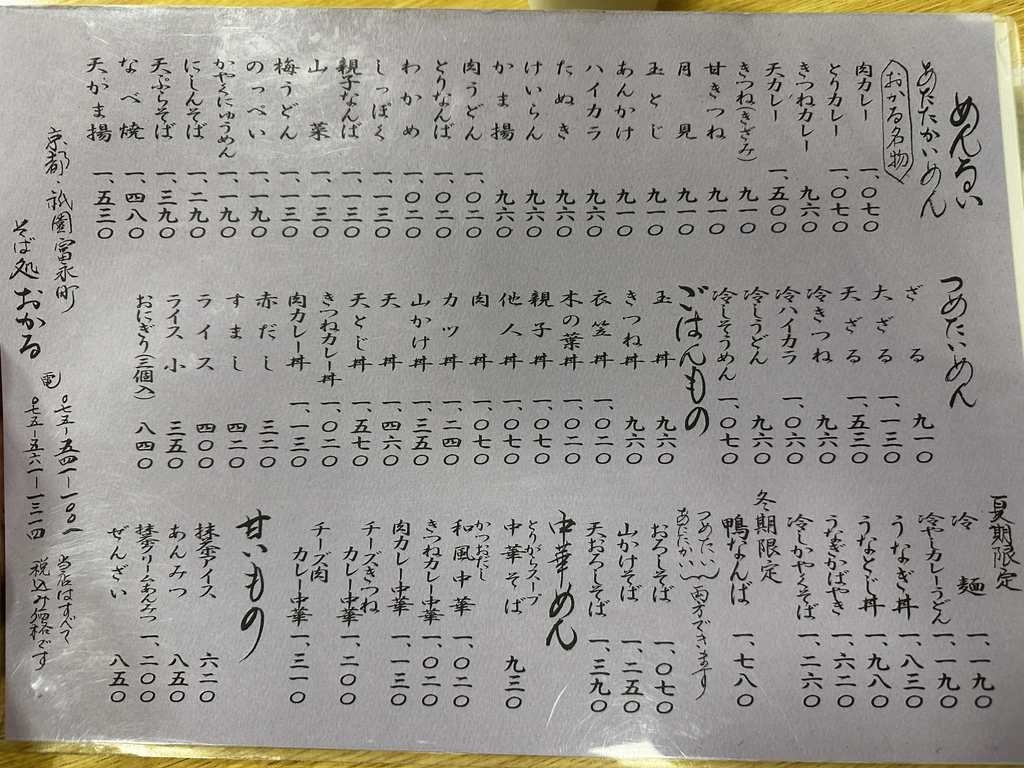 めんるい
あたたかいめん
おかる名物
肉カレー 一、〇七〇
とりカレー 一、〇七〇
きつねカレー 九六〇
天カレー 一、五〇〇
きつね(きざみ) 九一〇
甘きつね 九一〇
月見 九一〇
玉とじ 九一〇
あんかけ 九一〇
ハイカラ 九六〇
たぬき 九六〇
けいらん 九六〇
かま揚 九六〇
肉うどん 一、〇二〇
とりなんば 一、〇二〇
わかめ 一、〇二〇
しっぽく 一、一三〇
親子なんば 一、一三〇
山菜 一、一三〇
梅うどん 一、一三〇
のっぺい 一、一九〇
かやくにゅうめん 一、一九〇
にしんそば 一、二九〇
天ぷらそば 一、三九〇
なべ焼 一、四八〇
天がま揚 一、五三〇
つめたいめん
ざる 九一〇
大ざる 一、一三〇
天ざる 一、五三〇
冷きつね 九六〇
冷ハイカラ 一、〇六〇
冷しうどん 九六〇
冷しそうめん 一、〇七〇
ごはんもの
玉丼 九六〇
きつね丼 九六〇
衣笠丼 一、〇二〇
木の葉丼 一、〇二〇
親子丼 一、〇七〇
他人丼 一、〇七〇
肉丼 一、〇七〇
カツ丼 一、二四〇
山かけ丼 一、三五〇
天丼 一、四六〇
天とじ丼 一、五七〇
きつねカレー丼 一、〇二〇
肉カレー丼 一、一三〇
赤だし 三二〇
すまし 四二〇
ライス 四〇〇
ライス小 三五〇
おにぎり(三個入) 八四〇
夏期限定
冷麺 一、一九〇
冷やしカレーうどん 一、一九〇
うなぎ丼 一、八三〇
うなとじ丼 一、九八〇
うなぎかばやき 一、六二〇
冷しかやくそば 一、二六〇
冬期限定
鴨なんば 一、七八〇
つめたい
あたたかい
両方できます
おろしそば 一、〇七〇
山かけそば 一、二五〇
天おろしそば 一、三九〇
中華めん
とりがらスープ
中華そば 九三〇
かつおだし
和風中華 一、〇二〇
きつねカレー中華 一、〇二〇
肉カレー中華 一、一三〇
チーズきつね
カレー中華 一、二〇〇
チーズ肉
カレー中華 一、三一〇
甘いもの
抹茶アイス 六二〇
あんみつ 八五〇
抹茶クリームあんみつ 一、二〇〇
ぜんざい 八五〇
京都・祇園富永町
そば処おかる
電 〇七五-五四一-一〇〇一
〇七五-五六一-一三一四
当店はすべて
税込み価格です